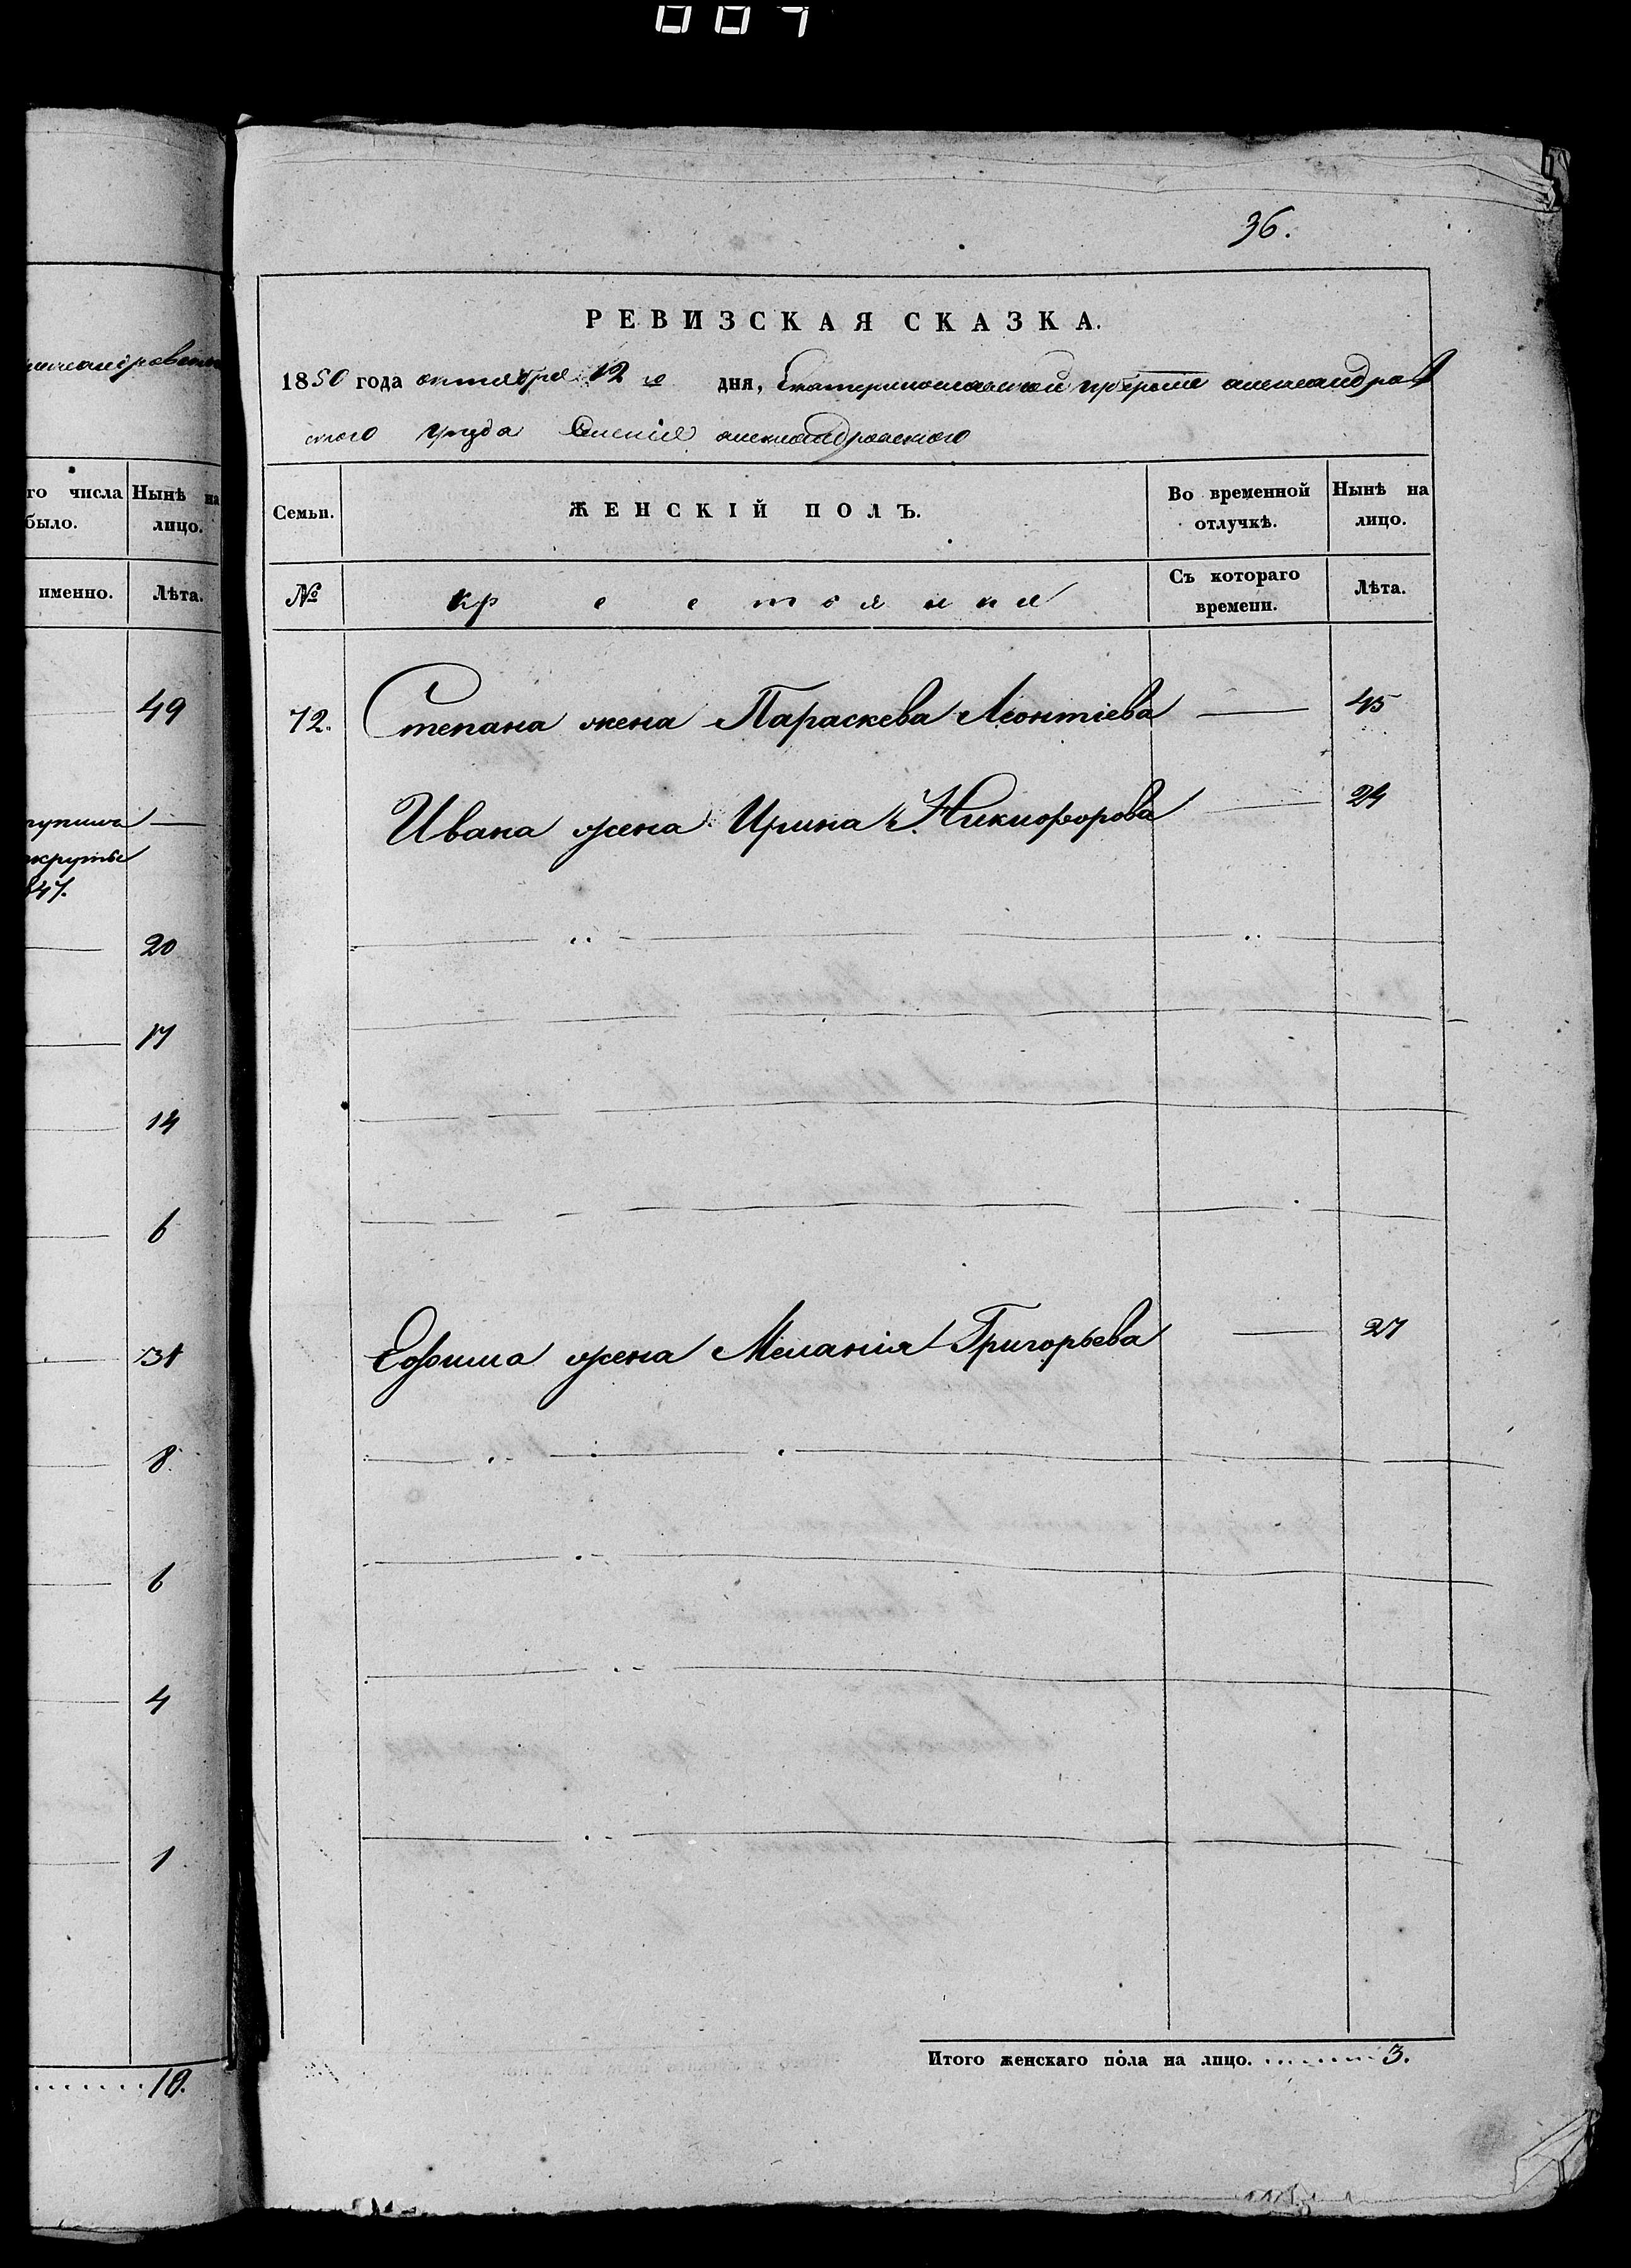 007
36.
РЕВИЗСКАЯ СКАЗКА.
1850 года октября 12 го дня, Екатеринославской губерніи александров
ского уезда Имения александровского
го числа Нынѣ на
было. лицо.
именно. Лѣта.
49
847.
20
17
14
6
31
8.
6
4
1
10.
Семьи. ЖЕНСКІЙ ПОЛЪ. Во временной отлучкѣ. Нынѣ на лицо.
№ крестьяне Съ котораго времени. Лѣта.
72. Степана жена Параскева Леонтіева — 45
Ивана жена Ирина Никифорова — 24
Ефима жена Меланія Григорьева — 27
Итого женскаго пола на лицо. 3.